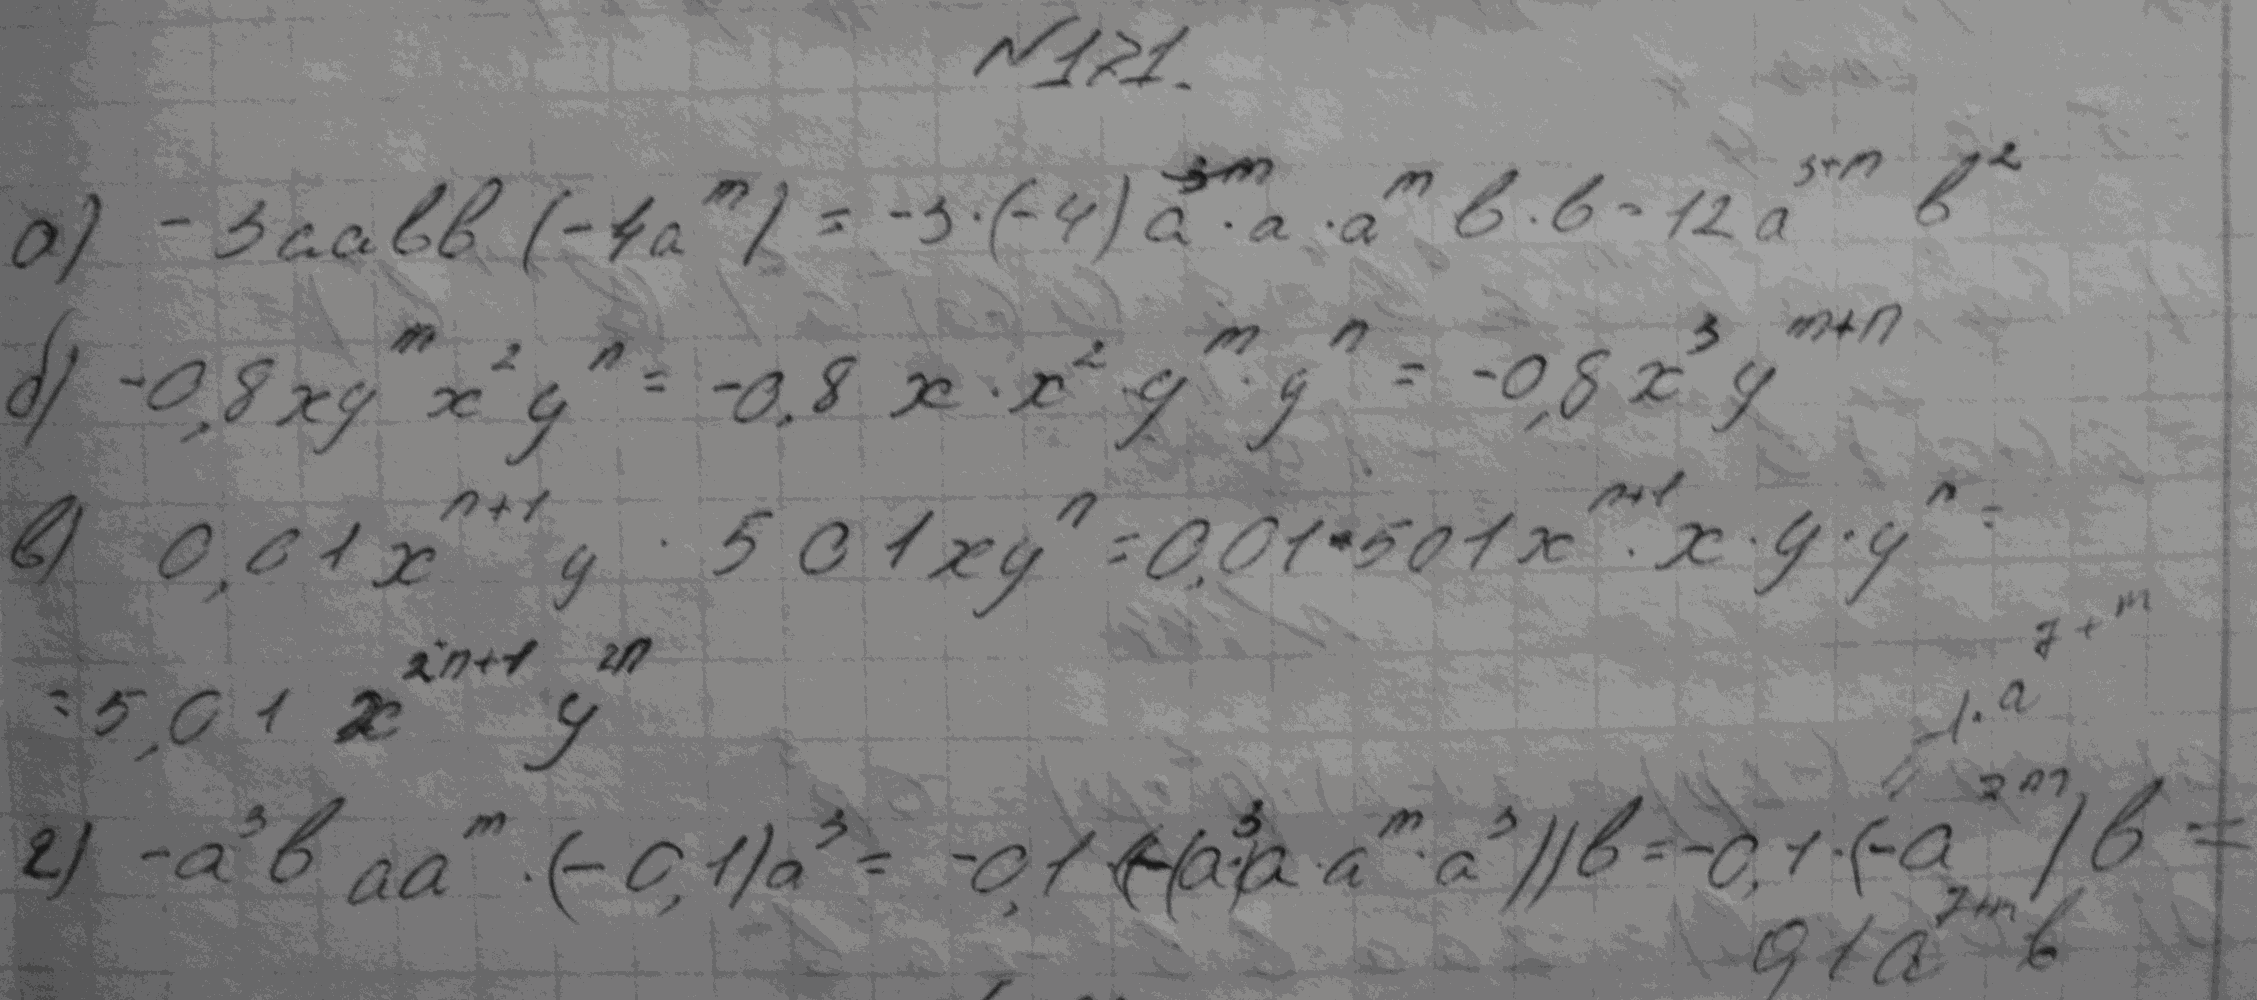 №171.
а) -3aabb(-4a^m) = -3·(-4)a·a·a^m b·b = 12a^{3+m} b^2
б) -0,8xy^m x^2 y^n = -0,8 x·x^2 y^m·y^n = -0,8x^3 y^{m+n}
в) 0,01x^{n+1} y · 501xy^n = 0,01·501x^{n+1}·x·y·y^n =
= 5,01 x^{2n+1} y^{2n}
-1·a^{7+m}
г) -a^3 b aa^m·(-0,1)a^3 = -0,1(-(a^3·a·a^m·a^3))b = -0,1·(-a^{7m})b =
0,1a^{7+m} b